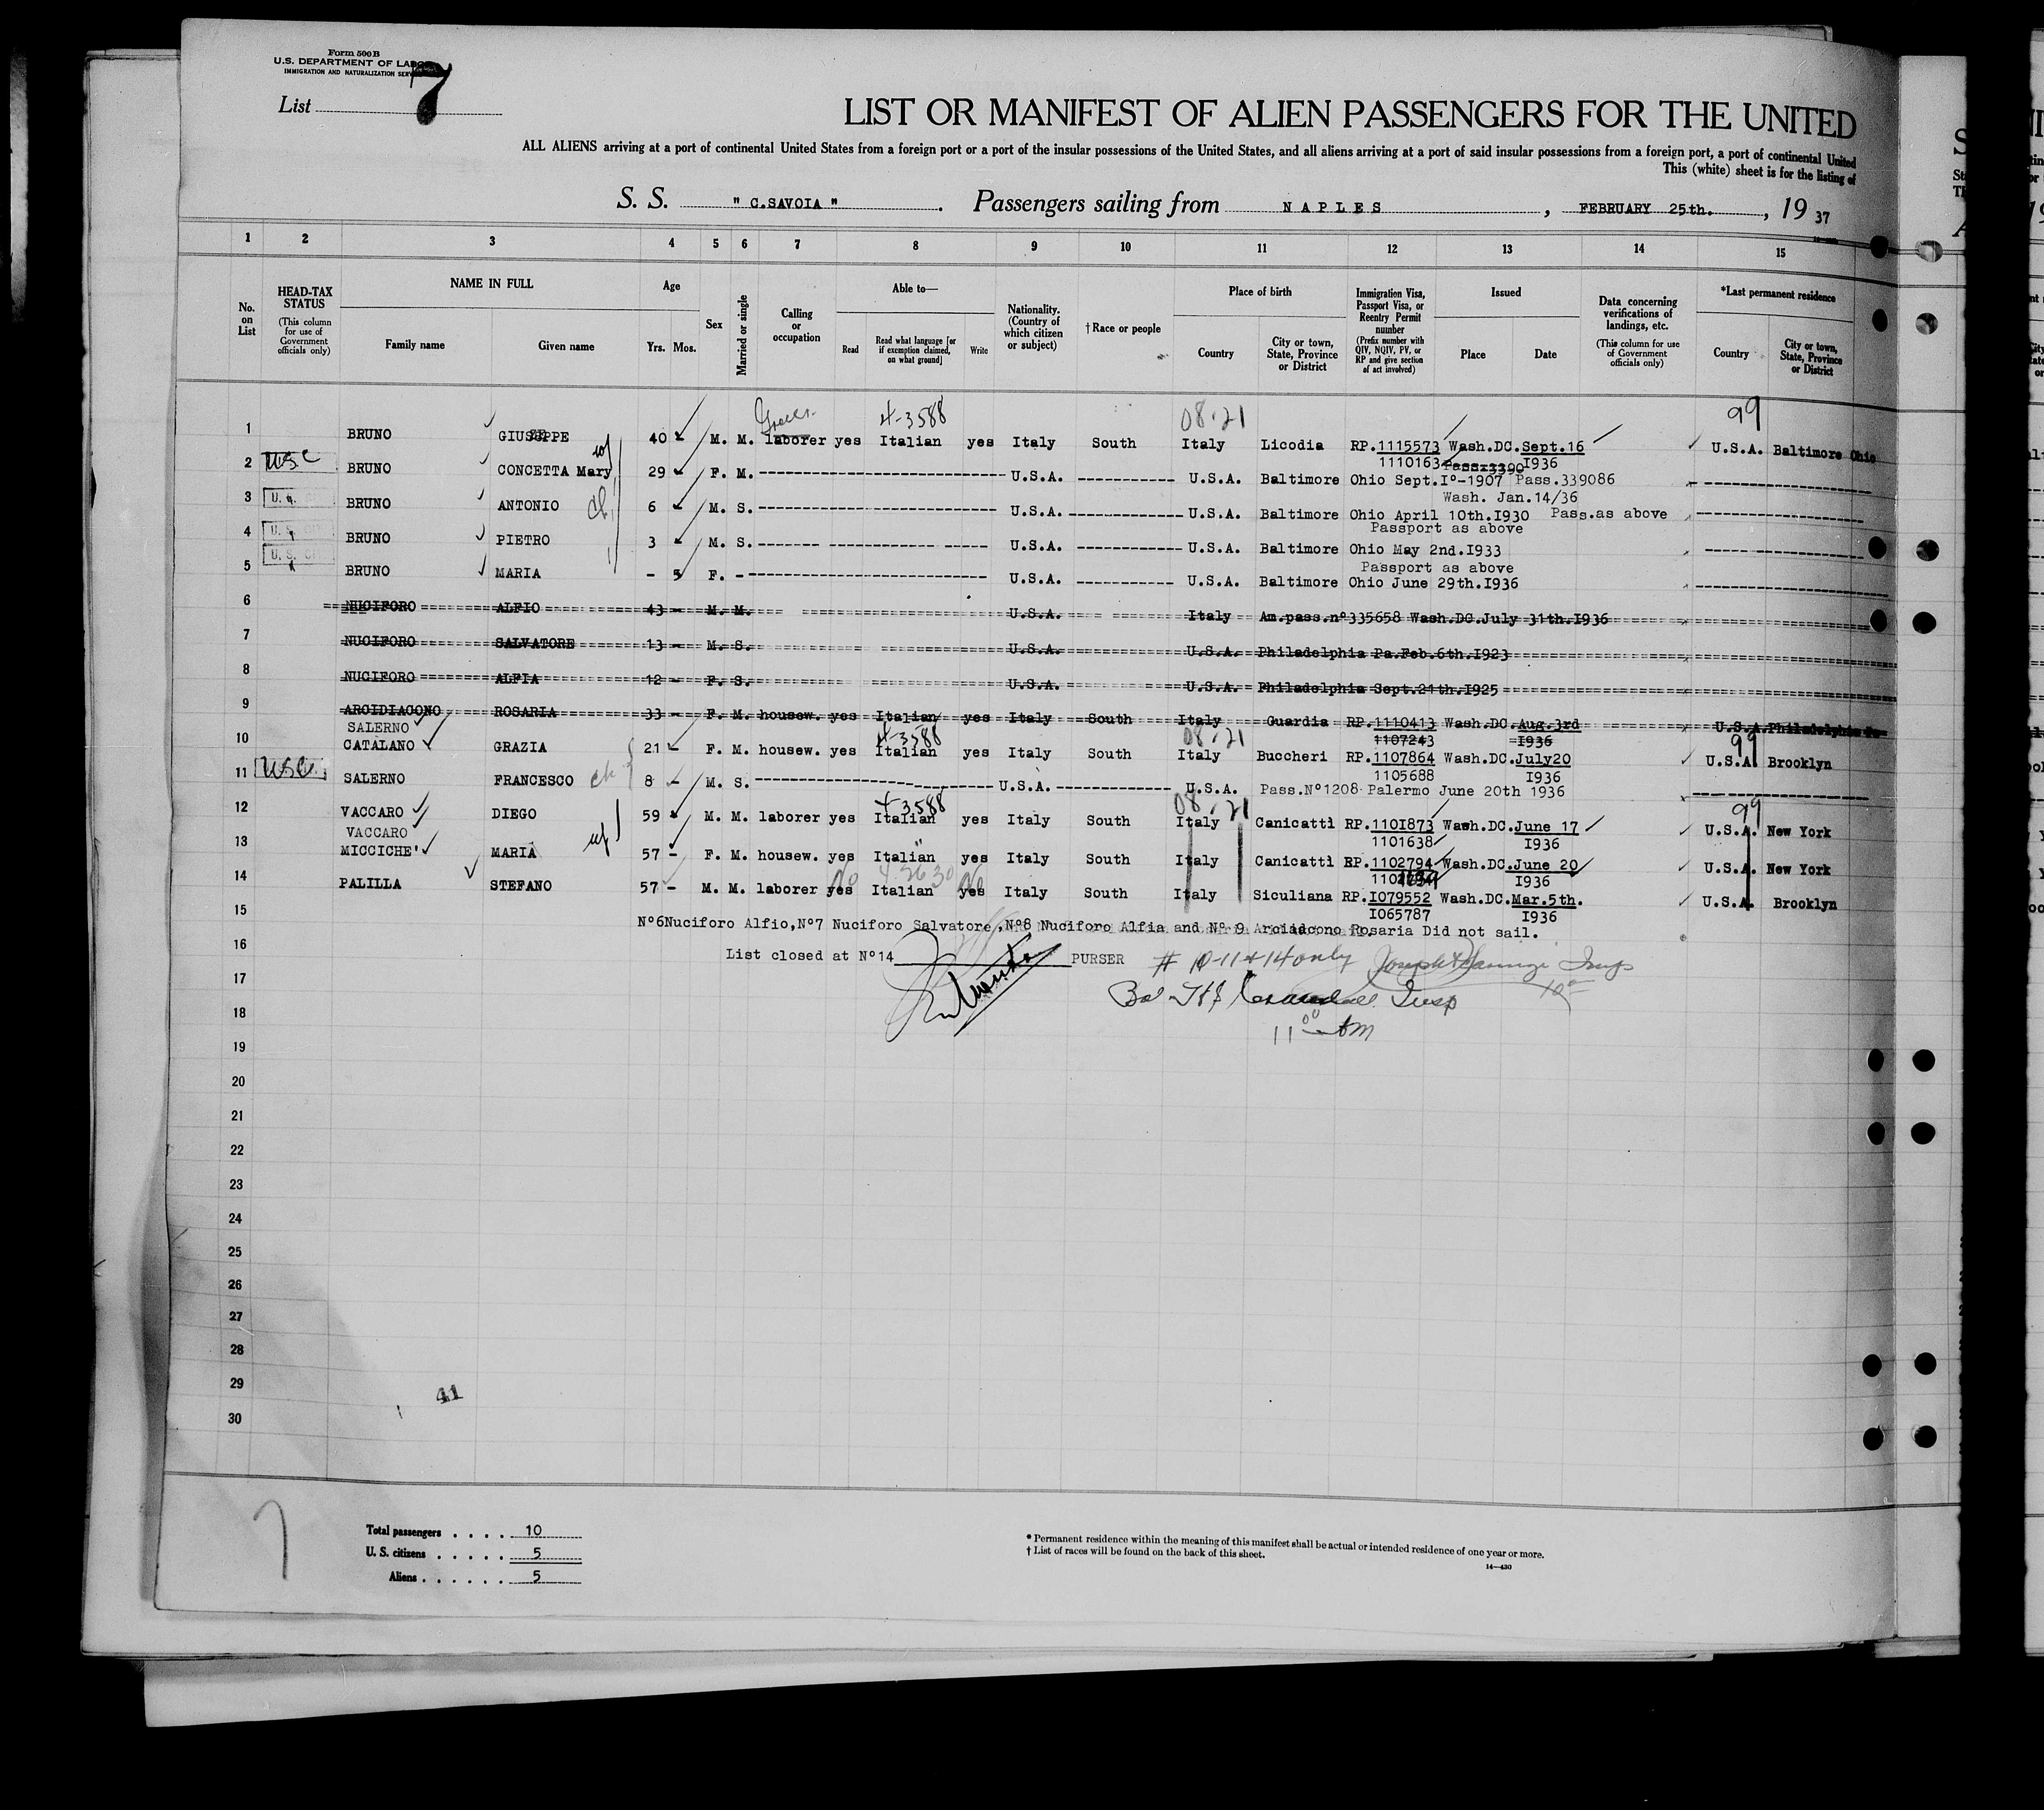 Form 500B
U.S. DEPARTMENT OF LABOR
IMMIGRATION AND NATURALIZATION SERV
List 7
LIST OR MANIFEST OF ALIEN PASSENGERS FOR THE UNITED
ALL ALIENS arriving at a port of continental United States from a foreign port or a port of the insular possessions of the United States, and all aliens arriving at a port of said insular possessions from a foreign port, a port of continental United
This (white) sheet is for the listing of
S. S. " C.SAVOIA ". Passengers sailing from NAPLES, FEBRUARY 25th., 19 37
1 2 3 4 5 6 7 8 9 10 11 12 13 14 15
No. on List
HEAD-TAX STATUS (This column for use of Government officials only)
NAME IN FULL Family name Given name
Age Yrs. Mos.
Sex
Married or single
Calling or occupation
Able to— Read Read what language [or if exemption claimed, on what ground] Write
Nationality. (Country of which citizen or subject)
†Race or people
Place of birth Country City or town, State, Province or District
Immigration Visa, Passport Visa, or Reentry Permit number (Prefix number with QIV, NQIV, PV, or RP and give section of act involved)
Issued Place Date
Data concerning verifications of landings, etc. (This column for use of Government officials only)
*Last permanent residence Country City or town, State, Province or District
4-3588 08-21 99
1 BRUNO GIUSEPPE 40 - M. M. laborer yes Italian yes Italy South Italy Licodia RP.1115573 Wash.DC.Sept.16 U.S.A. Baltimore Ohio
1110163 I936
2 USC BRUNO CONCETTA Mary wf 29 - F. M. U.S.A. U.S.A. Baltimore Ohio Sept.I°-1907 Pass.339086
Wash. Jan.14/36
3 BRUNO ANTONIO ch 6 - M. S. U.S.A. U.S.A. Baltimore Ohio April 10th.I930 Pass.as above
Passport as above
4 BRUNO PIETRO 3 - M. S. U.S.A. U.S.A. Baltimore Ohio May 2nd.I933
Passport as above
5 BRUNO MARIA - 5 F. - U.S.A. U.S.A. Baltimore Ohio June 29th.I936
6 NUCIFORO ALFIO 43 - M. M. U.S.A. Italy Am.pass.n°335658 Wash.DC.July 31th.I936
7 NUCIFORO SALVATORE 13 - M. S. U.S.A. U.S.A. Philadelphia Pa.Feb.6th.I923
8 NUCIFORO ALFIA 12 - F. S. U.S.A. U.S.A. Philadelphia Sept.21th.I925
9 ARCIDIACONO ROSARIA 33 - F. M. housew. yes Italian yes Italy South Italy Guardia RP.1110413 Wash.DC.Aug.3rd U.S.A. Philadelphia Pa
SALERNO 4-3588 08-21 1107243 I936 99
10 CATALANO GRAZIA 21 - F. M. housew. yes Italian yes Italy South Italy Buccheri RP.1107864 Wash.DC.July20 U.S.A. Brooklyn
1105688 I936
11 USC SALERNO FRANCESCO ch 8 - M. S. U.S.A. U.S.A. Pass.N°1208 Palermo June 20th 1936
4-3588 08-21 99
12 VACCARO DIEGO 59 - M. M. laborer yes Italian yes Italy South Italy Canicattì RP.110I873 Wash.DC.June 17 U.S.A. New York
VACCARO 1101638 I936
13 MICCICHE' MARIA wf 57 - F. M. housew. yes Italian yes Italy South Italy Canicattì RP.1102794 Wash.DC.June 20 U.S.A. New York
No No I936
14 PALILLA STEFANO 57 - M. M. laborer yes Italian yes Italy South Italy Siculiana RP.I079552 Wash.DC.Mar.5th. U.S.A. Brooklyn
I065787 I936
15 N°6Nuciforo Alfio,N°7 Nuciforo Salvatore,N°8 Nuciforo Alfia and N° 9 Arcidacono Rosaria Did not sail.
16 List closed at N°14 PURSER # 10-11 & 14 only
17
18 11 00 AM
19
20
21
22
23
24
25
26
27
28
29
41
30
7
Total passengers . . . . 10
U. S. citizens . . . . . 5
Aliens . . . . . . 5
* Permanent residence within the meaning of this manifest shall be actual or intended residence of one year or more.
† List of races will be found on the back of this sheet.
14—430